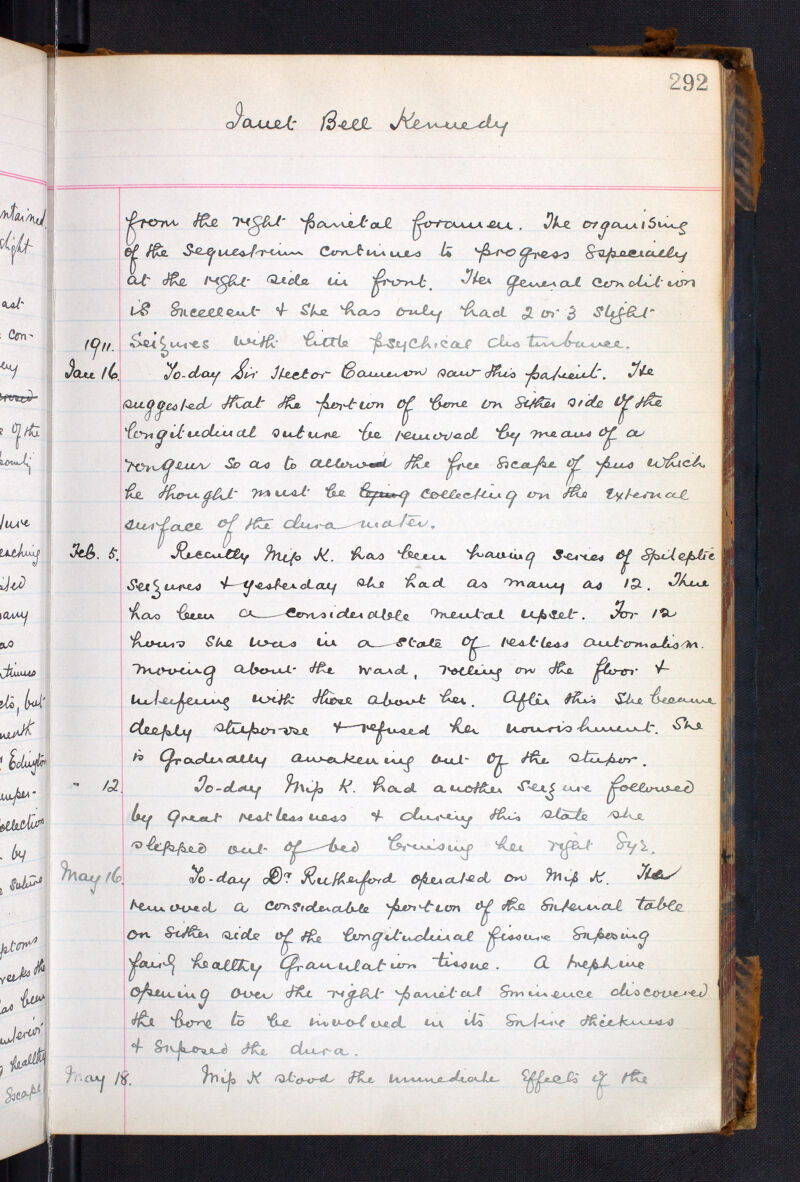 292
Janet Bell Kennedy
from the right parietal foramen. The organising
of the sequestrum continues to progress especially
at the right side in front. Her general condition
is excellent & she has only had 2 or 3 slight
1911. seizures with little psychical disturbance.
Jan 16. To-day Sir Hector Cameron saw this patient. He
suggested that the portion of bone on either side of the
longitudinal suture be removed by means of a
rongeur so as to allowed the free escape of pus which
he thought must be collecting on the external
surface of the dura mater.
Feb. 5. Recently Miss K. has been having series of epileptic
seizures & yesterday she had as many as 12. There
has been a considerable mental upset. For 12
hours she was in a state of restless automatism.
moving about the ward, rolling on the floor &
interfering with those about her. After this she became
deeply stuporose & refused her nourishment. She
is gradually awakening out of the stupor.
" 12. To-day Miss K. had another seizure followed
by great restlessness & during this state she
slipped out of bed bruising her right eye.
May 16. To-day Dr Rutherford operated on Miss K. He
removed a considerable portion of the internal table
on either side of the longitudinal fissure exposing
fairly healthy granulation tissue. A trephine
opening over the right parietal eminence discovered
the bone to be involved in its entire thickness
& exposed the dura.
May 18. Miss K stood the immediate effects of the
ntained
slight
ast
con-
of the
as
but
Edington
by
suture
ptoms
weeks the
as been
healthy
escape